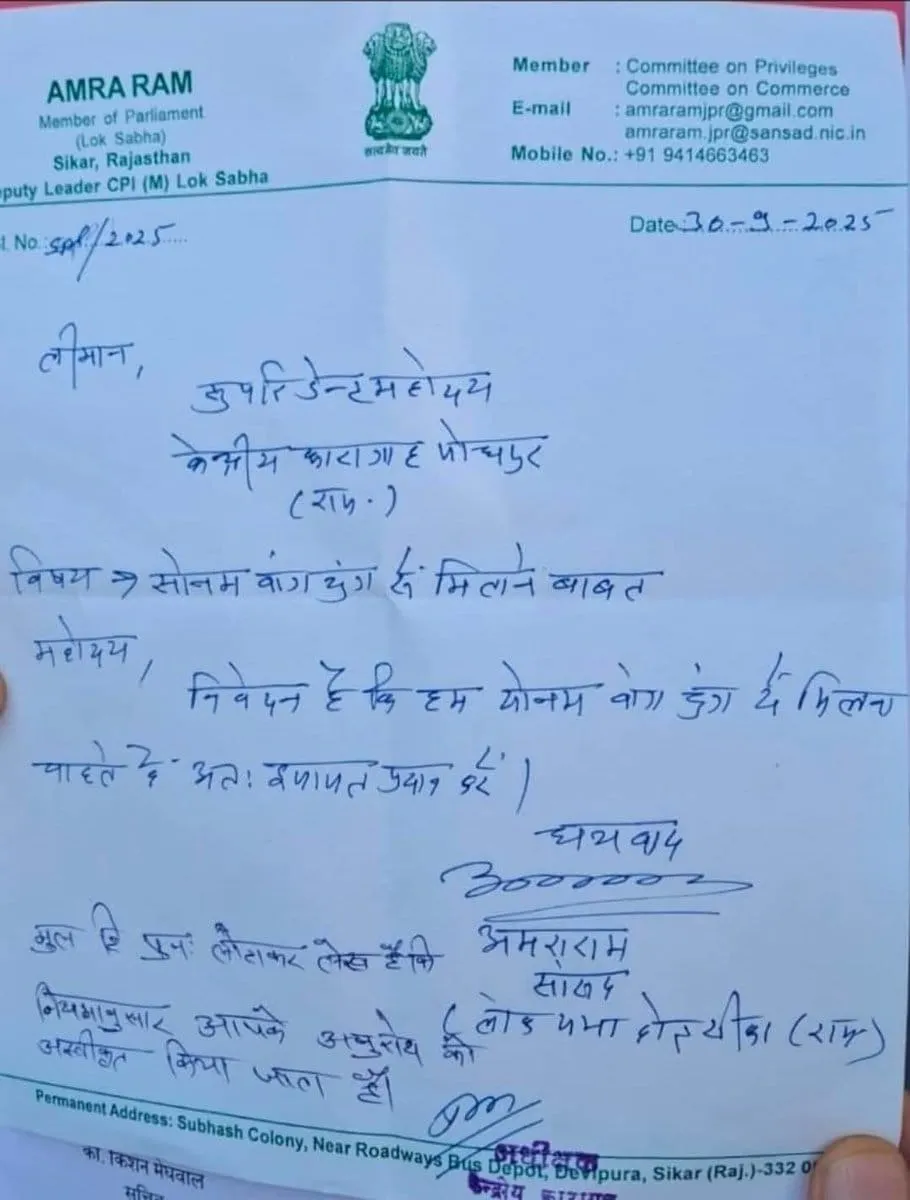 AMRA RAM
Member of Parliament
(Lok Sabha)
Sikar, Rajasthan
puty Leader CPI (M) Lok Sabha
सत्यमेव जयते
Member : Committee on Privileges
Committee on Commerce
E-mail : amraramjpr@gmail.com
amraram.jpr@sansad.nic.in
Mobile No.: +91 9414663463
l. No.: spl/2025
Date 30-9-2025
श्रीमान,
सुपरिडेन्ट महोदय
केन्द्रीय कारागाह जोधपुर
(राज.)
विषय → सोनम वांग चुंग से मिलने बाबत
महोदय,
निवेदन है कि हम सोनम वांग चुंग से मिलना
चाहते है अतः इजाजत प्रदान करें।
धन्यवाद
अमराराम
सांसद
लोक सभा क्षेत्र सीकर (राज)
मूल ही पुनः लौटाकर लेख है कि
नियमानुसार आपके अनुरोध को
अस्वीकृत किया जाता है।
Permanent Address: Subhash Colony, Near Roadways Bus Depot, Devipura, Sikar (Raj.)-332 0
अधीक्षक
केन्द्रीय कारागृह
का. किशन मेघवाल
सचिव